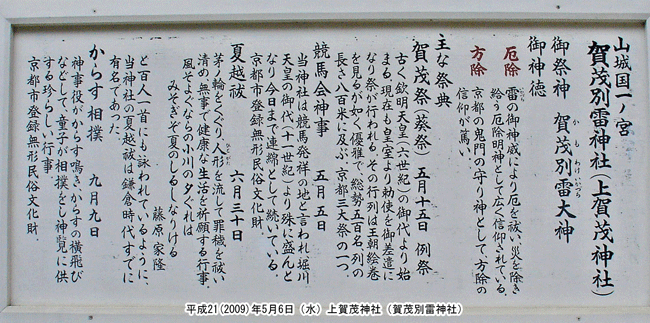 山城国一ノ宮
賀茂別雷神社(上賀茂神社)
御祭神 賀茂別雷大神
かもわけいかづち
御神徳
厄除 雷の御神威により厄を祓い災を除き
給う厄除明神として広く信仰されている。
方除 京都の鬼門の守り神として、方除の
信仰が篤い。
主な祭典
賀茂祭(葵祭) 五月十五日 例祭
古く欽明天皇(六世紀)の御代より始
まる。現在も皇室より勅使を御差遣に
なり祭が行われる。その行列は王朝絵巻
を見るが如く優雅で、総勢五百名、列の
長さ八百米に及ぶ、京都三大祭の一つ。
競馬会神事 五月五日
当神社は競馬発祥の地と言われ堀川
天皇の御代(十一世紀)より殊に盛んと
なり今日まで連綿として続いている。
京都市登録無形民俗文化財。
夏越祓 六月三十日
茅ノ輪をくぐり人形を流して罪穢を祓い
清め、無事で健康な生活を祈願する行事
風そよぐならの小川の夕ぐれは
みそぎぞ夏のしるしなりける
藤原家隆
と百人一首にも詠われているように、
当神社の夏越祓は鎌倉時代すでに
有名であった。
からす相撲 九月九日
神事役がからす鳴き、からすの横飛び
などして、童子が相撲をし神覧に供
する珍らしい行事
京都市登録無形民俗文化財。
平成21(2009)年5月6日(水)上賀茂神社(賀茂別雷神社)